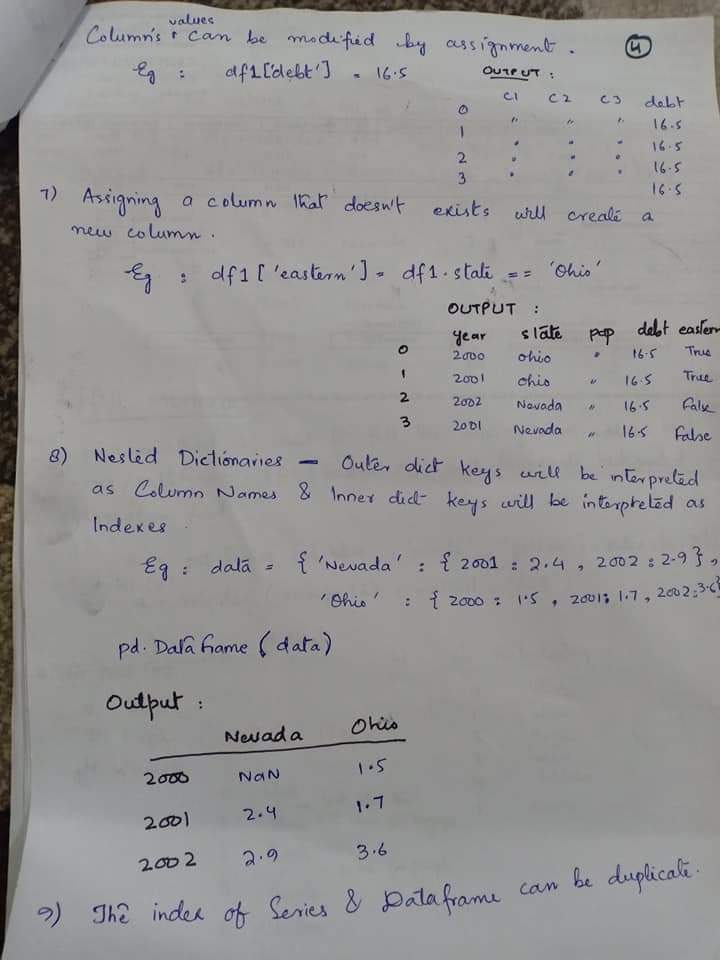 values
Column's can be modified by assignment. 4
Eg : df1['debt'] = 16.5 OUTPUT :
C1 C2 C3 debt
0 " " " 16.5
1 " " " 16.5
2 " " " 16.5
3 " " " 16.5
7) Assigning a column that doesn't exists will create a
new column.
Eg : df1['eastern'] = df1.state == 'Ohio'
OUTPUT :
year state pop debt eastern
0 2000 ohio " 16.5 True
1 2001 ohio " 16.5 True
2 2002 Nevada " 16.5 False
3 2001 Nevada " 16.5 False
8) Nested Dictionaries – Outer dict keys will be interpreted
as Column Names & Inner dict keys will be interpreted as
Indexes.
Eg : data = {'Nevada' : {2001 : 2.4, 2002 : 2.9},
'Ohio' : {2000 : 1.5, 2001: 1.7, 2002:3.6}
pd.DataFrame(data)
Output :
Nevada Ohio
2000 NaN 1.5
2001 2.4 1.7
2002 2.9 3.6
9) The index of Series & Dataframe can be duplicate.